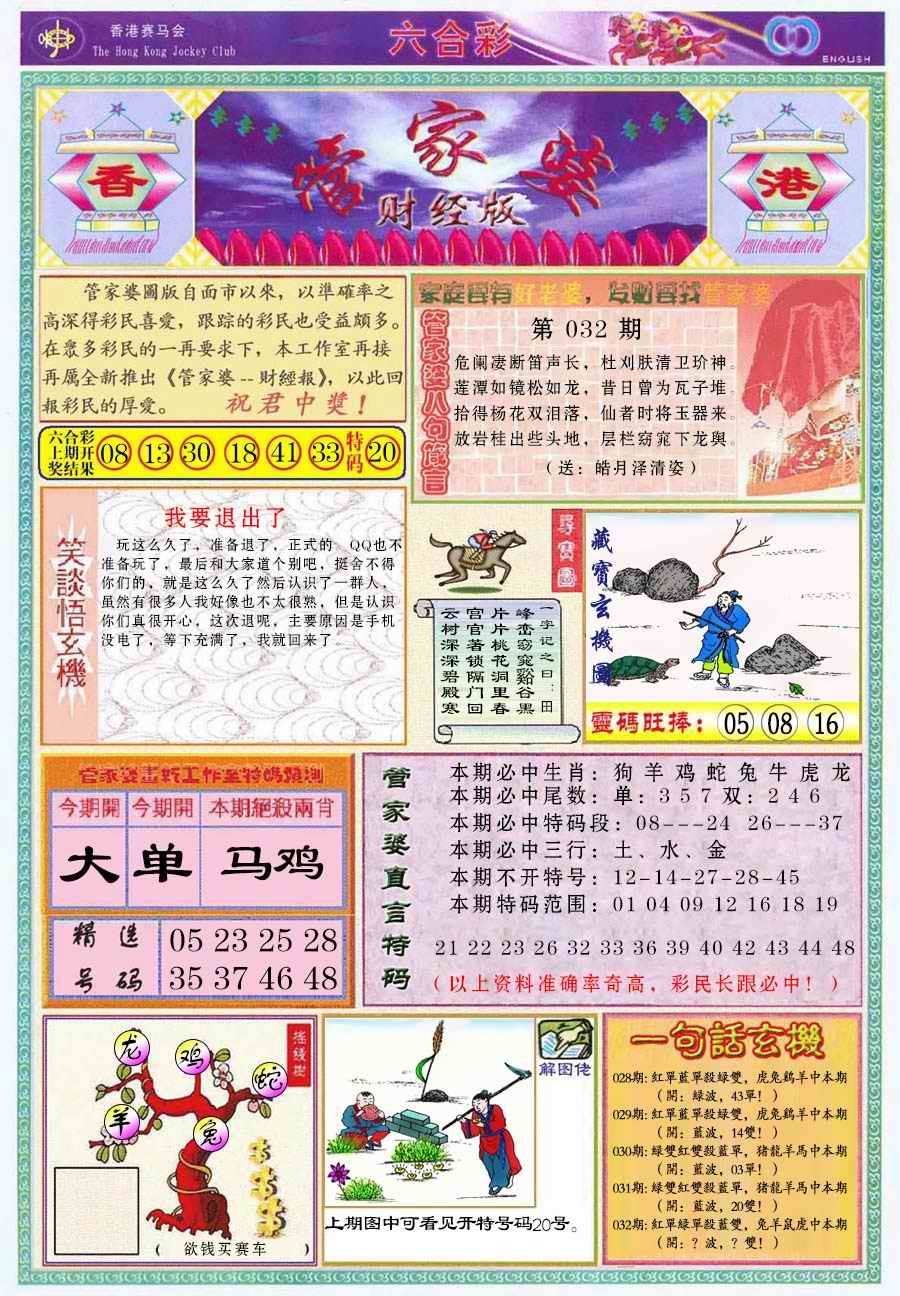 香港赛马会
The Hong Kong Jockey Club
六合彩
ENGLISH
香
管家婆
财经版
港
管家婆圖版自面市以來，以準確率之
高深得彩民喜愛，跟踪的彩民也受益頗多。
在眾多彩民的一再要求下，本工作室再接
再厲全新推出《管家婆--財經報》，以此回
報彩民的厚愛。
祝君中獎！
六合彩
上期开
奖结果
08 13 30 18 41 33 特码 20
家庭要有好老婆，发财要找管家婆
管家婆八句箴言
第 032 期
危阑凄断笛声长，杜刈肤清卫玠神。
莲潭如镜松如龙，昔日曾为瓦子堆。
拾得杨花双泪落，仙者时将玉器来。
放岩桂出些头地，层栏窈窕下龙舆。
（送：皓月泽清姿）
笑談悟玄機
我要退出了
玩这么久了，准备退了，正式的 QQ也不
准备玩了，最后和大家道个别吧，挺舍不得
你们的，就是这么久了然后认识了一群人，
虽然有很多人我好像也不太很熟，但是认识
你们真很开心，这次退呢，主要原因是手机
没电了，等下充满了，我就回来了
尋寶圖
一字记之曰：田
峰峦窈窕谿谷黑
片片桃花洞里春
宫官著锁隔门回
云树深深碧殿寒
藏寶玄機圖
靈碼旺捧： 05 08 16
今期開 今期開 本期絕殺兩肖
大 单 马鸡
精选号码
05 23 25 28
35 37 46 48
管家婆直言特码
本期必中生肖：狗 羊 鸡 蛇 兔 牛 虎 龙
本期必中尾数：单：3 5 7 双：2 4 6
本期必中特码段：08---24 26---37
本期必中三行：土、水、金
本期不开特号：12-14-27-28-45
本期特码范围：01 04 09 12 16 18 19
21 22 23 26 32 33 36 39 40 42 43 44 48
（以上资料准确率奇高，彩民长跟必中！）
摇錢樹
龙
鸡
蛇
羊
兔
（ 欲钱买赛车 ）
解图佬
上期图中可看见开特号码20号。
一句話玄機
028期：紅單藍單殺綠雙，虎兔鷄羊中本期
（開：綠波，43單！）
029期：紅單藍單殺綠雙，虎兔鷄羊中本期
（開：藍波，14雙！）
030期：綠雙紅雙殺藍單，猪龍羊馬中本期
（開：藍波，03單！）
031期：綠雙紅雙殺藍單，猪龍羊馬中本期
（開：藍波，20雙！）
032期：紅單綠單殺藍雙，兔羊鼠虎中本期
（開：？波，？雙！）